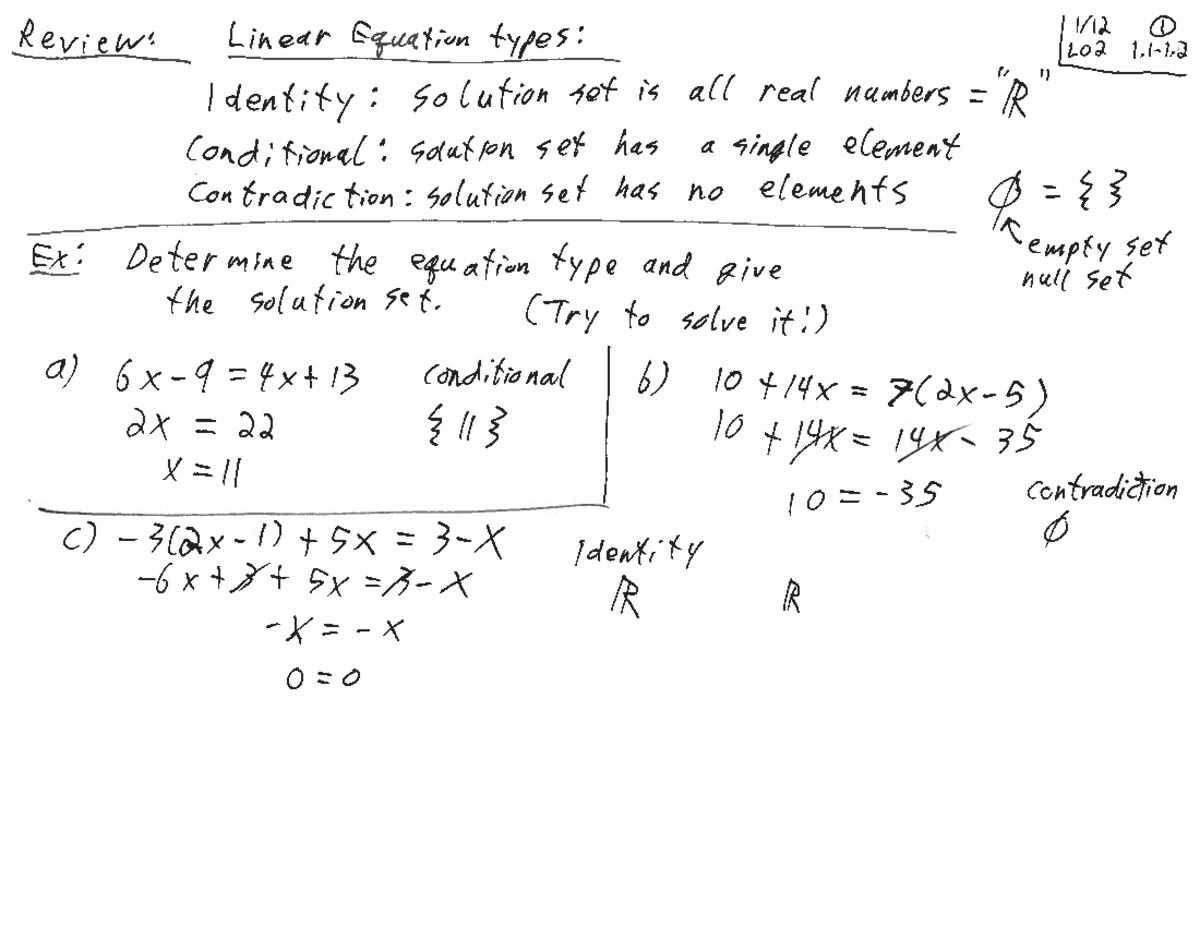 Review: Linear Equation types:
1/12 ①
L02 1.1-1.2
Identity: solution set is all real numbers = "ℝ"
Conditional: solution set has a single element
Contradiction: solution set has no elements
∅ = { }
empty set
null set
Ex: Determine the equation type and give
the solution set. (Try to solve it!)
a) 6x - 9 = 4x + 13 conditional
2x = 22 {11}
x = 11
b) 10 + 14x = 7(2x - 5)
10 + 14x = 14x - 35
10 = -35 contradiction
∅
c) -3(2x - 1) + 5x = 3 - x Identity
-6x + 3 + 5x = 3 - x ℝ ℝ
-x = -x
0 = 0